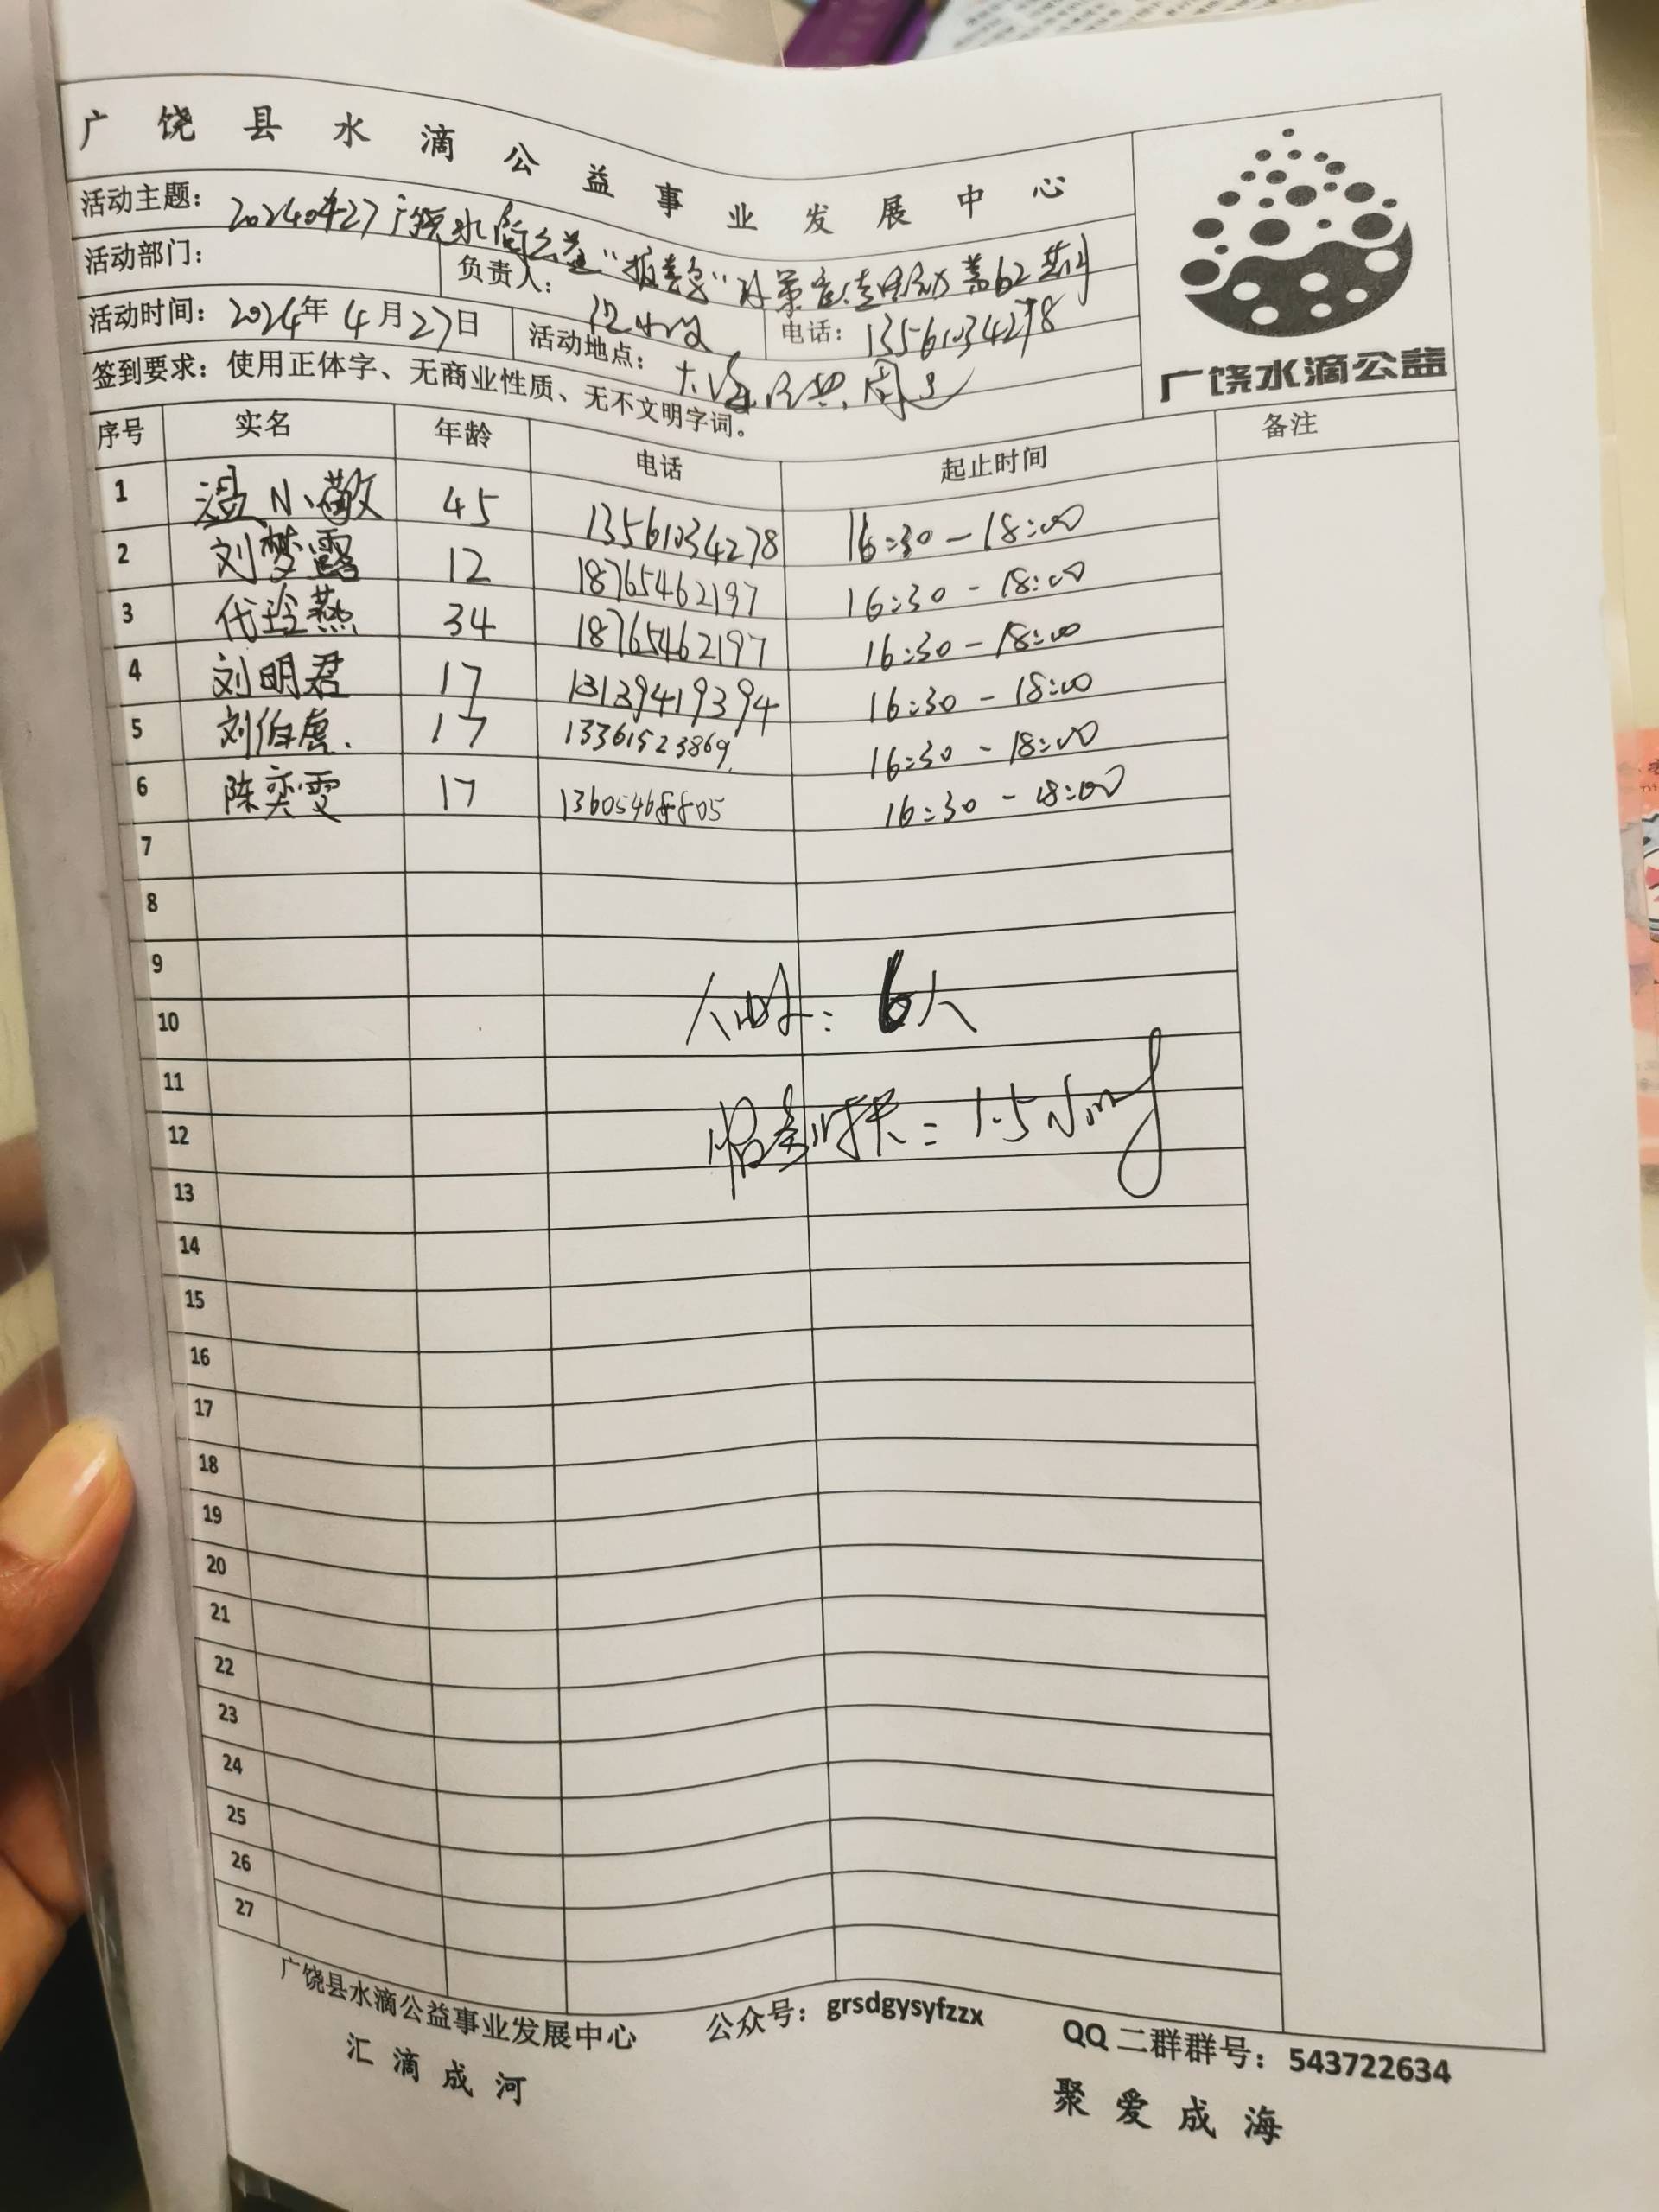 广饶县水滴公益事业发展中心
活动主题：20240427广饶水滴公益
活动部门： 负责人： 电话：13561034278
活动时间：2024年4月27日 活动地点： 周边
签到要求：使用正体字、无商业性质、无不文明字词。
广饶水滴公益
序号 实名 年龄 电话 起止时间 备注
1 温小敬 45 13561034278 16:30-18:00
2 刘梦露 12 18765462197 16:30-18:00
3 代玲燕 34 18765462197 16:30-18:00
4 刘明君 17 13139419394 16:30-18:00
5 刘伯虎 17 13361523869 16:30-18:00
6 陈奕雯 17 13605468805 16:30-18:00
7
8
9
10
人 ：6人
11
12
服务时长：1.5小时
13
14
15
16
17
18
19
20
21
22
23
24
25
26
27
广饶县水滴公益事业发展中心 公众号：grsdgysyfzzx QQ二群群号：543722634
汇滴成河 聚爱成海